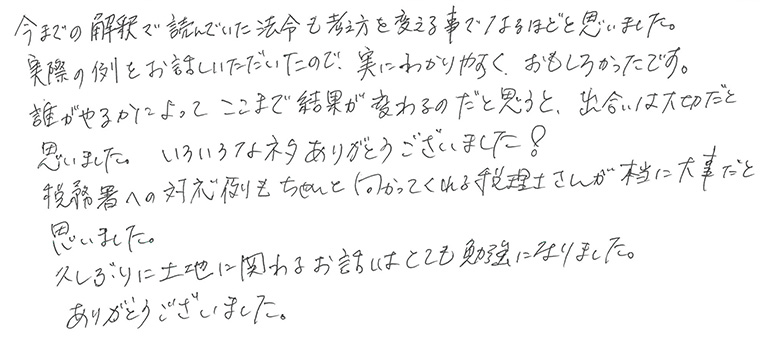 今までの解釈で読んでいた法令も考え方を変える事でなるほどと思いました。
実際の例をお話しいただいたので、実にわかりやすく、おもしろかったです。
誰がやるかによってここまで結果が変わるのだと思うと、出合いは大切だと
思いました。いろいろなネタありがとうございました！
税務署への対応例もちゃんと向かってくれる税理士さんが本当に大事だと
思いました。
久しぶりに土地に関わるお話しはとても勉強になりました。
ありがとうございました。